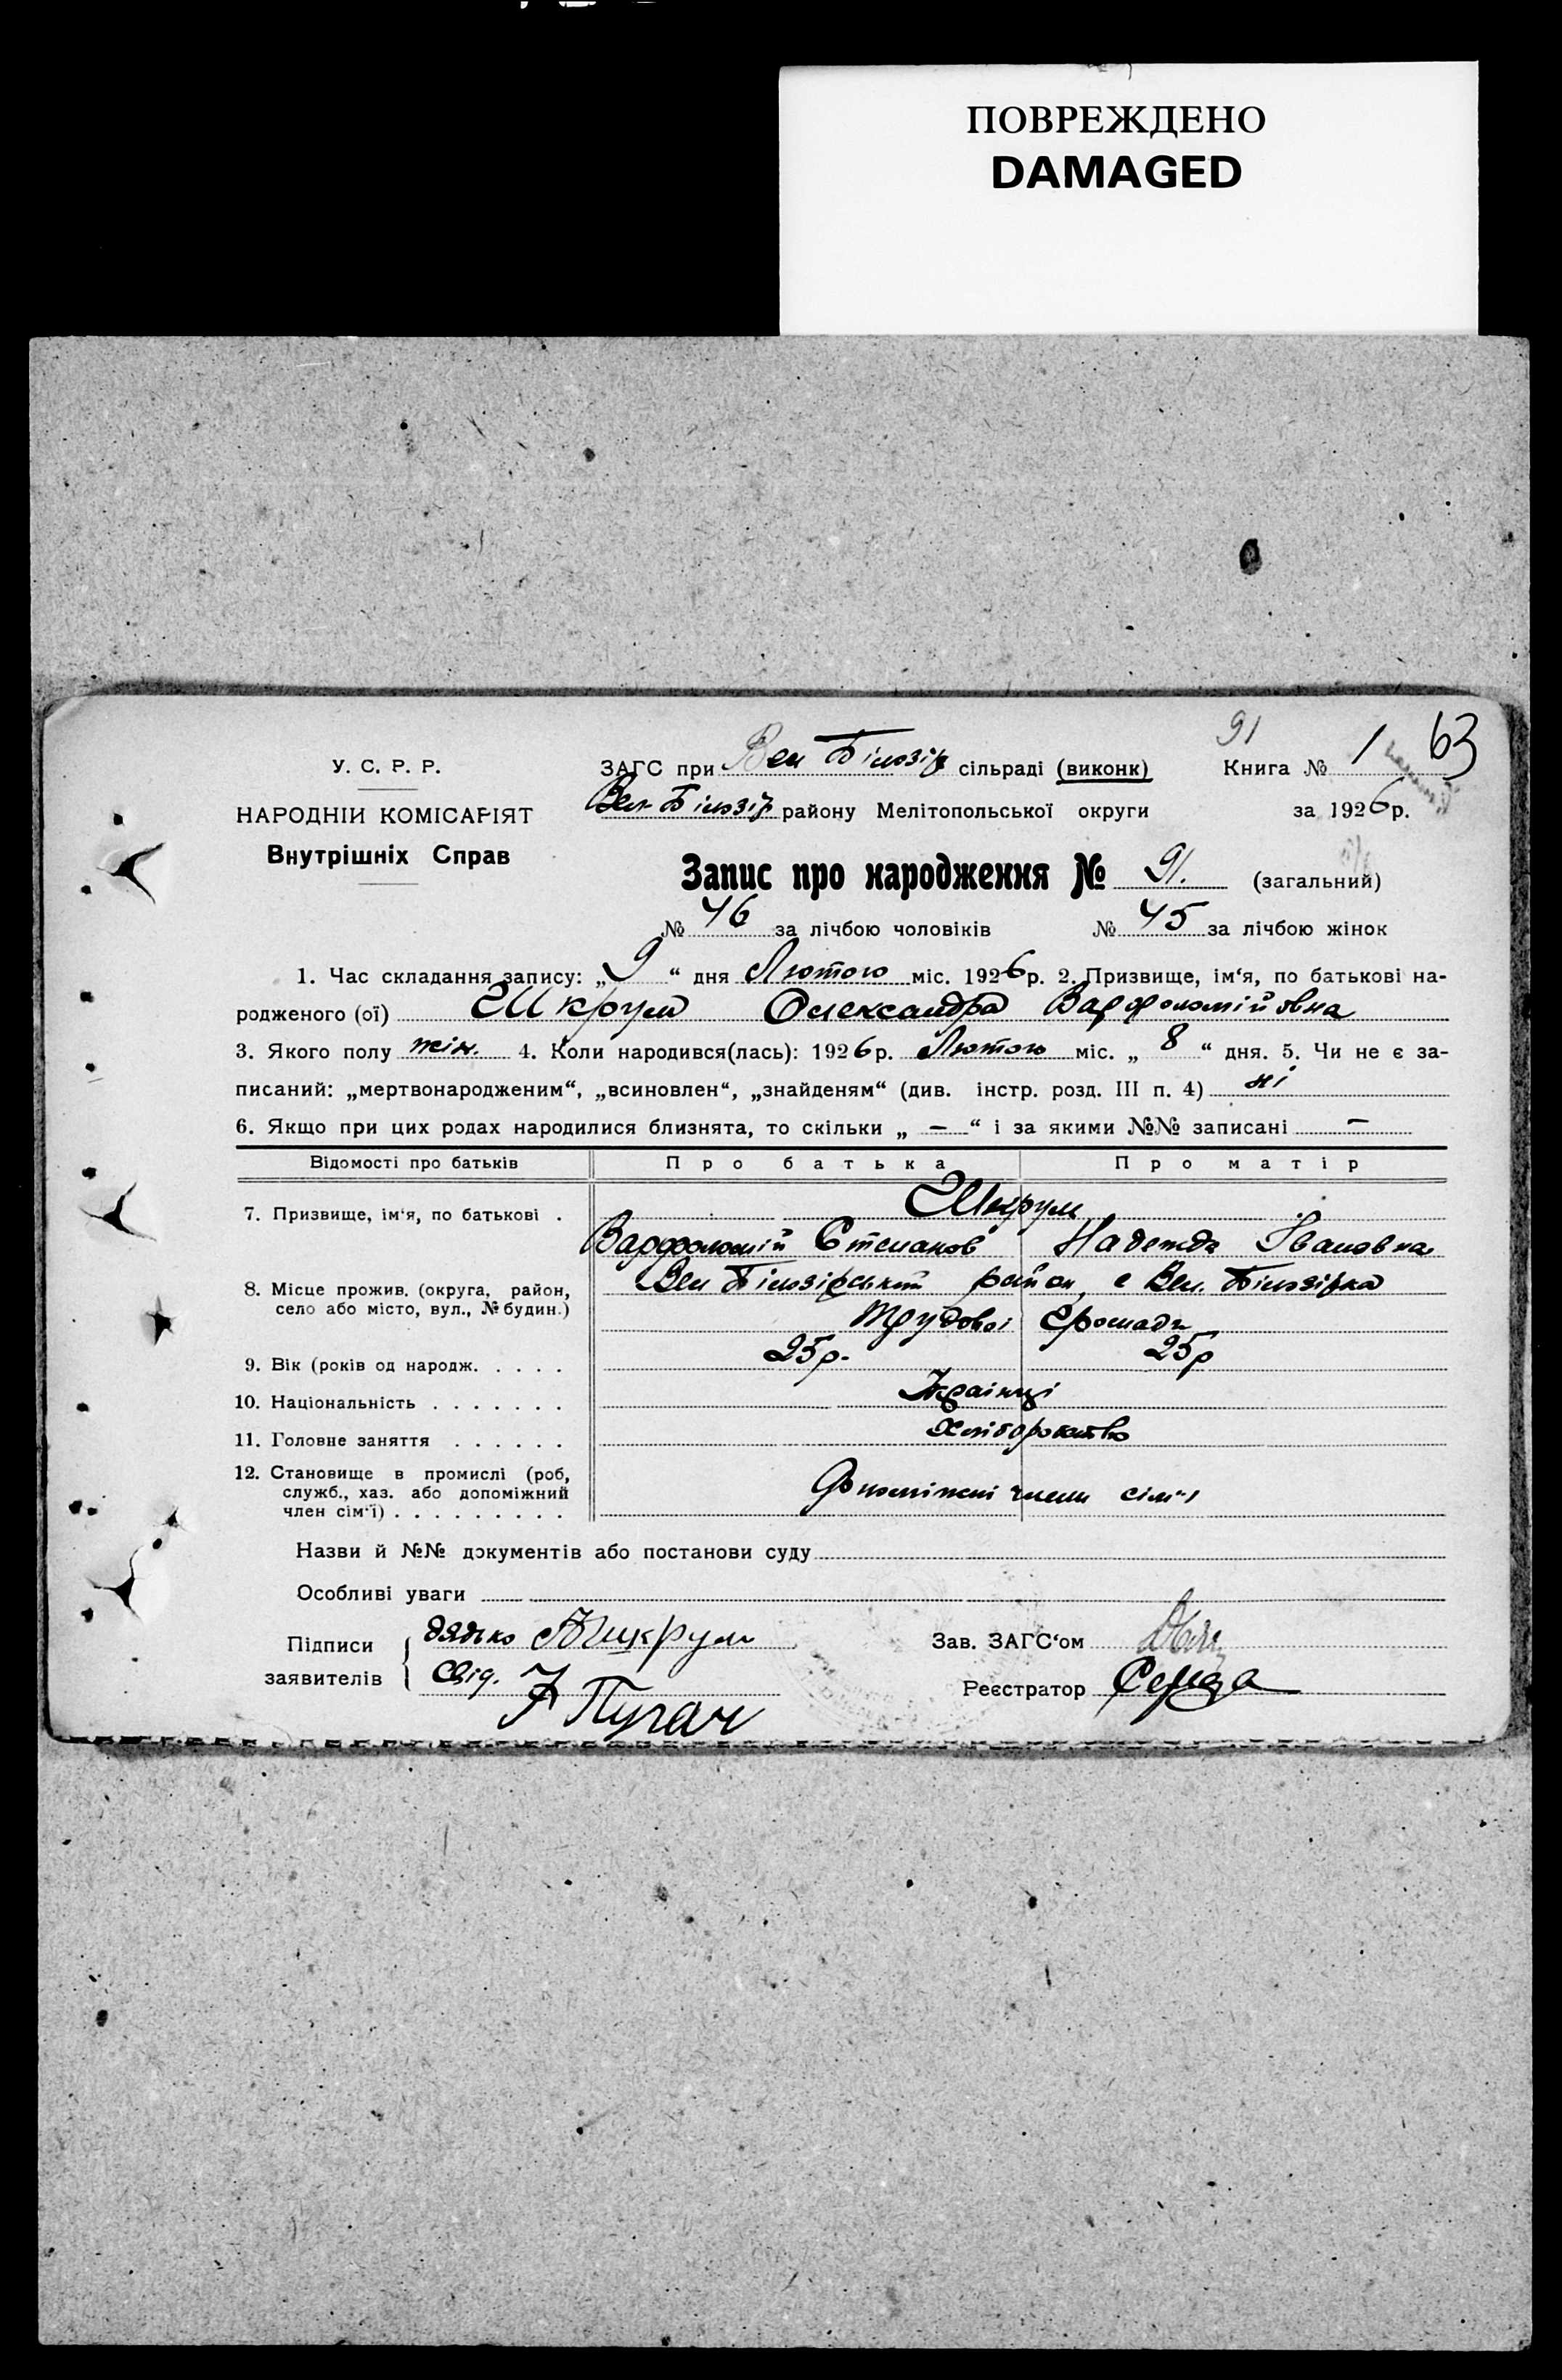 ПОВРЕЖДЕНО
DAMAGED
91
63
У. С. Р. Р.
НАРОДНІЙ КОМІСАРІЯТ
Внутрішніх Справ
ЗАГС при Вел Білозір сільраді (виконк) Книга № 1
Вел Білозір району Мелітопольської округи за 1926 р.
Запис про народження № 91. (загальний)
№ 46 за лічбою чоловіків № 45 за лічбою жінок
1. Час складання запису: „9“ дня Лютого міс. 1926 р. 2. Призвище, ім‘я, по батькові на-
родженого (ої) Шкрум Олександра Варфоломійовна
3. Якого полу жін. 4. Коли народився(лась): 1926 р. Лютого міс. „8“ дня. 5. Чи не є за-
писаний: „мертвонародженим“, „всиновлен“, „знайденям“ (див. інстр. розд. III п. 4) ні
6. Якщо при цих родах народилися близнята, то скільки „—“ і за якими №№ записані —
Відомості про батьків Про батька Про матір
7. Призвище, ім‘я, по батькові . Шкрум
Варфоломій Степанов Надежда Івановна
8. Місце прожив. (округа, район, село або місто, вул., № будин.) Вел Білозірський район, с Вел. Білозірка
Трудової Громади
9. Вік (років од народж. . . . . 25р. 25р
10. Національність . . . . . . . Українці
11. Головне заняття . . . . . . Хліборобство
12. Становище в промислі (роб, служб., хаз. або допоміжний член сім‘ї) . . . . . . . . . Допоміжні члени сім'ї
Назви й №№ документів або постанови суду
Особливі уваги
Підписи заявителів
дядько Шкрум
Свід. Пугач
Зав. ЗАГС‘ом
Реєстратор Середа